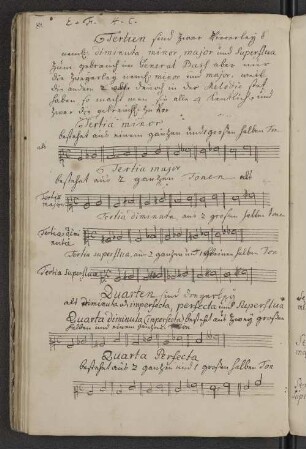 Tertien sind zwar viererley
nemlich diminuta minor, major und superflua
zum gebrauch im General Bass aber nur
die zweyerley nemlich minor und major. weil
die andern 2 doch in der Melodie statt
haben so macht man sie alle 4 kentlich und
Tertia minor
bestehet aus einem gantzen und 1 großen halben Ton
als
Tertia major
bestehet aus 2 gantzen Tonen als
Tertia major
Tertia diminuta, aus 2 großen halben tone
Tertia diminuta
Tertia superflua, aus 2 gantzen und 1 kleinen halben Ton
Tertia superflua
Quarten sind dreyerley
als diminuta od imperfecta, perfecta und superflua
Quarta diminuta (imperfecta) bestehet aus zweyen großen
halben und einem gantzen Ton
Quarta Perfecta
bestehet aus 2 gantzen und 1 großen halben Ton